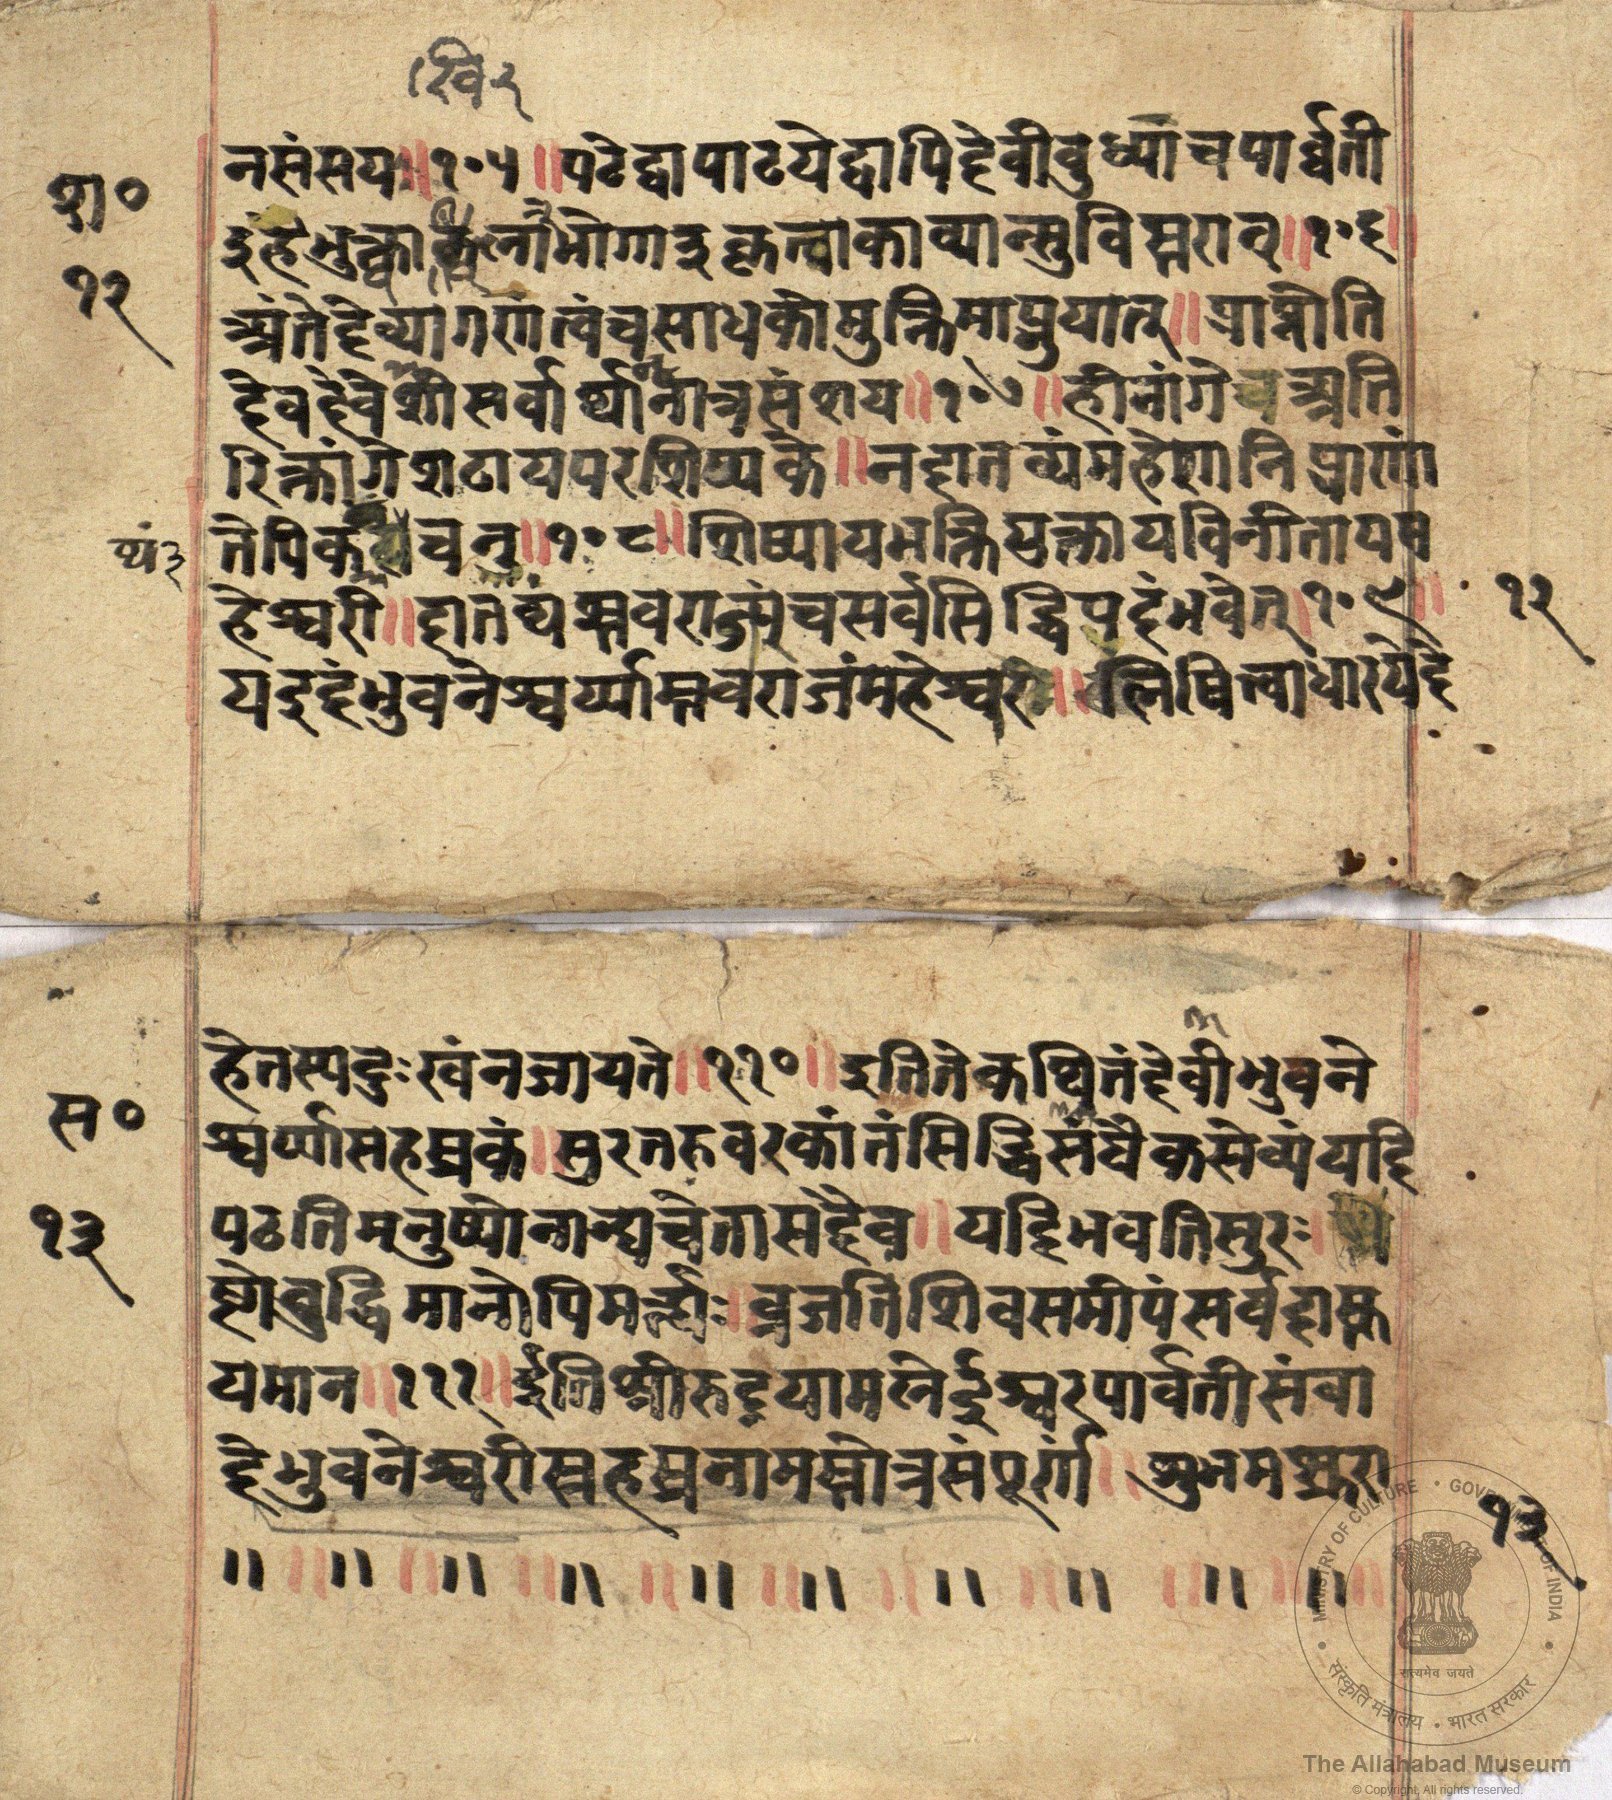 खि २
नसंसय ॥ १०५ ॥ पठेद्वा पाठयेद्वापि देवीवुध्याच पार्व्वती
इहभुक्त्वा भोगा दुकृतत्वाकाव्यान्सुविस्तरान् ॥ १०६ ॥
अंतेदेव्यागणत्वंचसाधकोमुक्तिमाप्नुयात् ॥ प्राप्नोति
देवदेवेशीसर्वार्थ्यान्नात्रसंशय ॥ १०७ ॥ हीनांगे चअति
रिक्तांगेशठायपरशिष्यके ॥ नदातव्यंमहेशानिप्राणां
तेपिक चन् ॥ १०८ ॥ शिष्यायभक्तियुक्तायविनीतायम
हेश्वरी ॥ दातव्यंस्तवराजंचसर्वसिद्धिप्रदंभवेत् । १०९ ॥
यदुदंभुवनेश्वर्य्यास्तवराजंमहेश्वर ॥ लिषित्वाधारयेद्दे
शा०
१२
थ्यं ३
१२
हेतस्यदुःखंनजायते ॥ ११० ॥ इतितेकथितंदेवीभुवने
श्वर्य्यासहस्रकं ॥ सुरतरुवरकांतंसिद्धिसंघैकसेव्यंयदि
पठतिमनुष्योनान्यचेतासदैव ॥ यदिभवतिसुरः ।
ष्टोवुद्धिमानोपिमर्त्यः । व्रजतिशिवसमीपंसर्वदास्तू
यमान ॥ १११ ॥ इतिश्रीरुद्रयामलेईश्वरपार्वतीसंवा
देभुवनेश्वरीसहस्रनामस्तोत्रसंपूर्णं ॥ शुभमस्तु
॥ ॥ ॥ ॥ ॥ ॥ ॥ ॥ ॥ ॥ ॥ ॥ ॥ ॥ ॥ ॥ ॥ ॥
स०
१३
१३
MINISTRY OF CULTURE • GOVERNMENT OF INDIA
सत्यमेव जयते
संस्कृति मंत्रालय • भारत सरकार
The Allahabad Museum
© Copyright, All rights reserved.